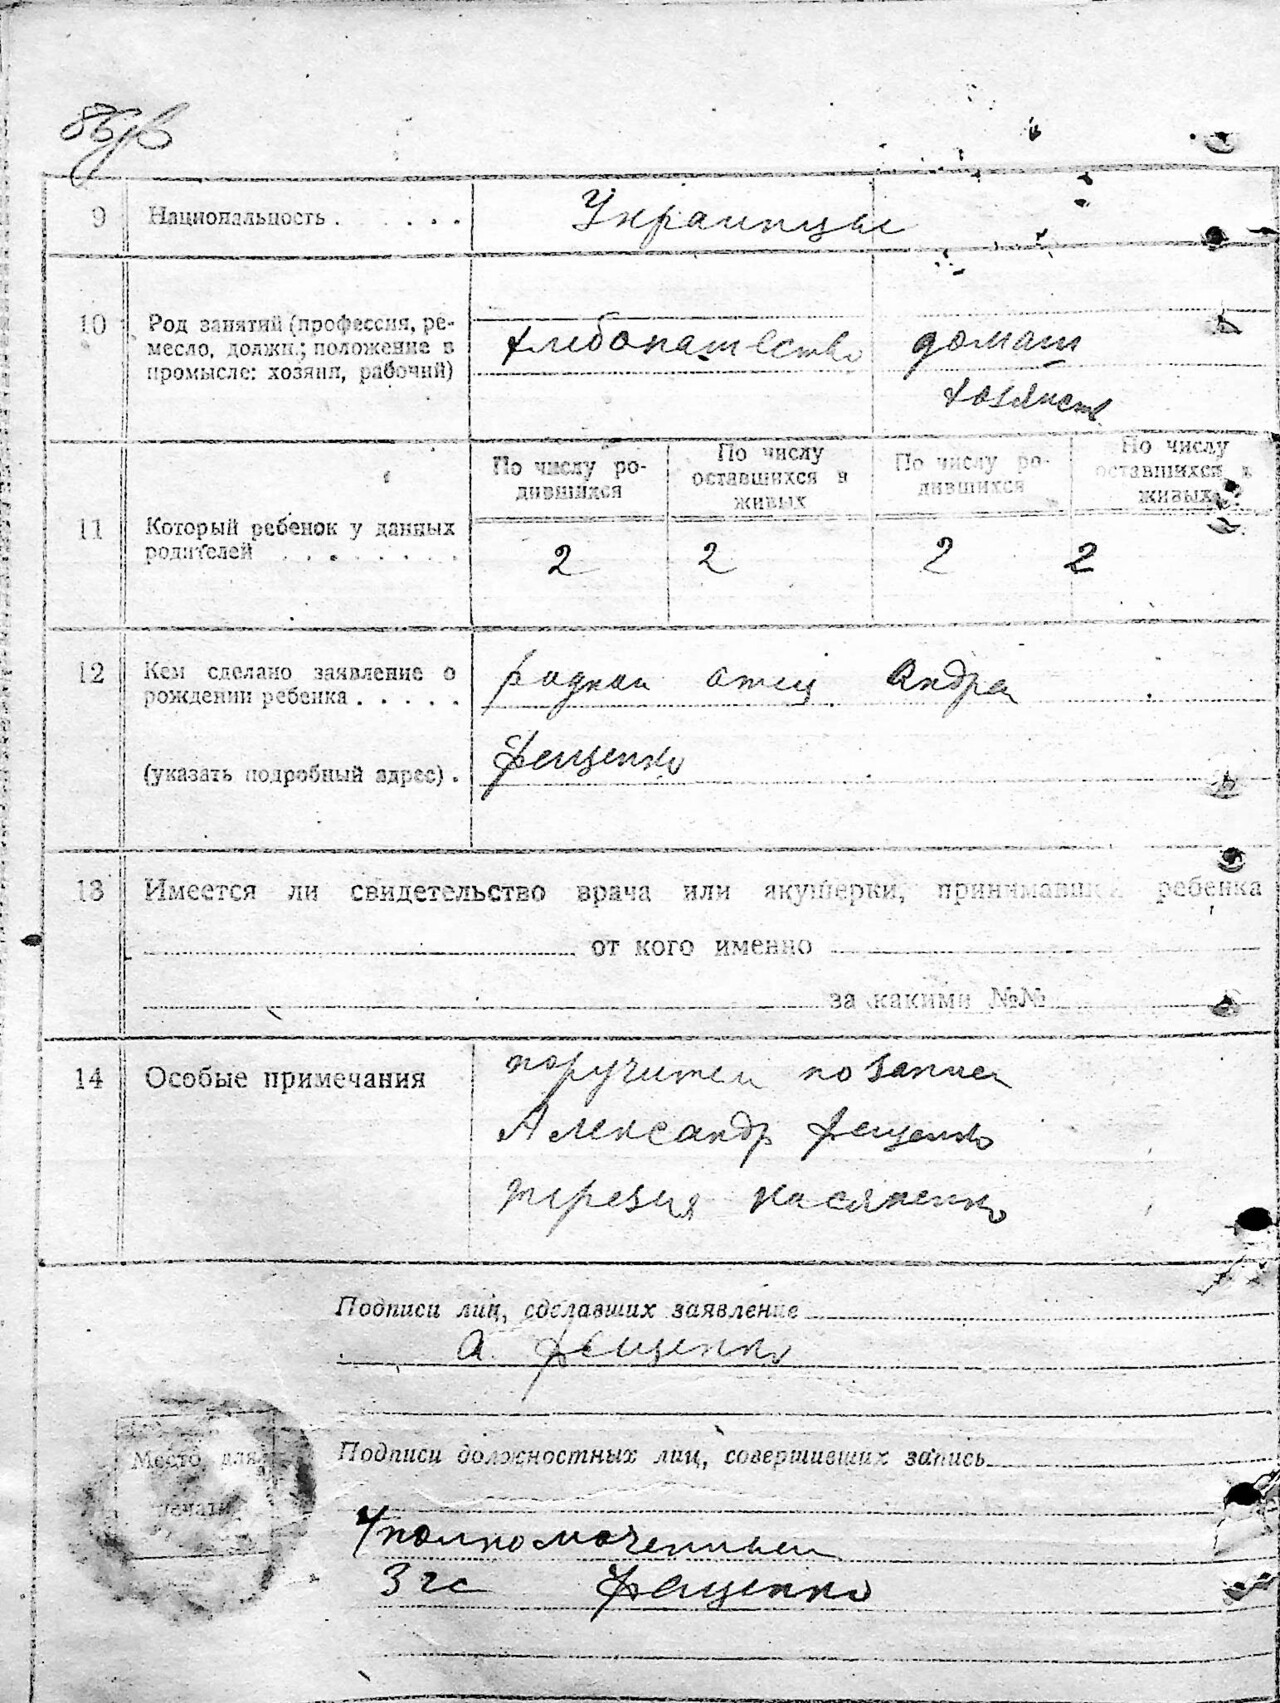 9 Национальность . . . . Украинцы
10 Род занятий (профессия, ре-
месло, должн.; положение в
промысле: хозяин, рабочий)
хлибопашество домаш
хозяйств
11 Который ребенок у данных
родителей . . . . . . . .
По числу ро-
дившихся
По числу
оставшихся в
живых
По числу ро-
дившихся
По числу
оставшихся в
живых
2 2 2 2
12 Кем сделано заявление о
рождении ребенка . . . . .
роднои отец Андрей
(указать подробный адрес) . Фещенко
13 Имеется ли свидетельство врача или акушерки, принимавшей ребенка
от кого именно
за какими №№
14 Особые примечания
поручители по записи
Александр Фещенко
Терезия Касяненко
Подписи лиц, сделавших заявление
А. Фещенко
Подписи должностных лиц, совершивших запись
Место для
печати
Уполномоченный
Загс Фещенко